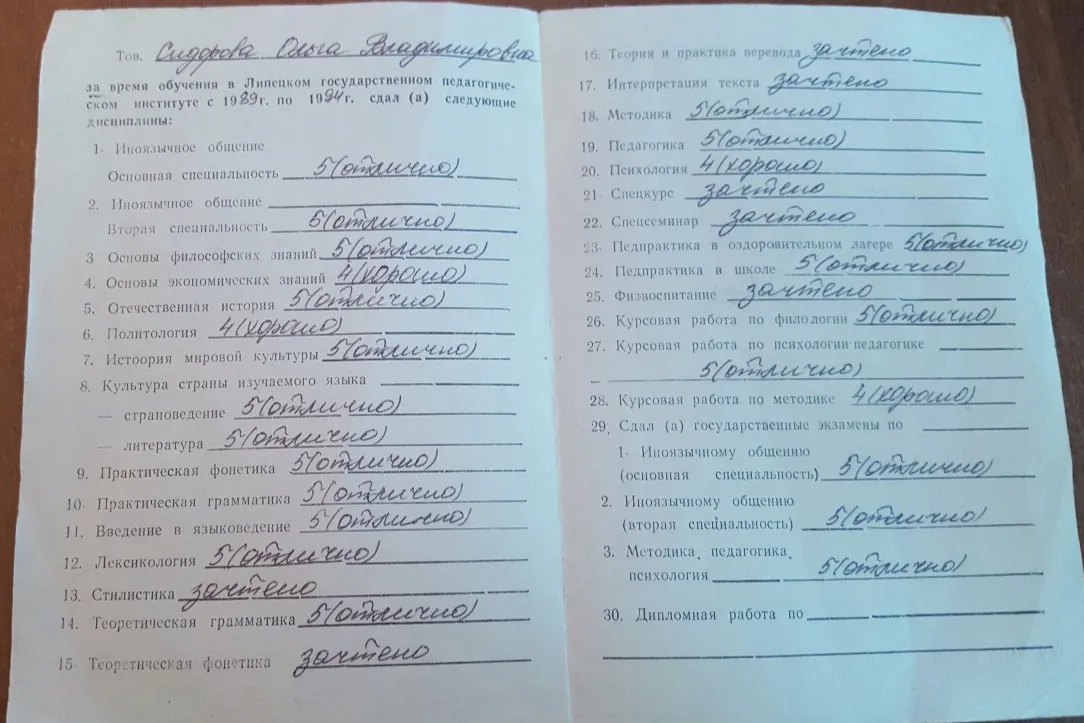 Тов. Сидорова Ольга Владимировна
за время обучения в Липецком государственном педагогиче-
ском институте с 1989г. по 1994г. сдал (а) следующие
дисциплины:
1. Иноязычное общение
Основная специальность 5(отлично)
2. Иноязычное общение
Вторая специальность 5(отлично)
3 Основы философских знаний 5(отлично)
4. Основы экономических знаний 4(хорошо)
5. Отечественная история 5(отлично)
6. Политология 4(хорошо)
7. Истоория мировой культуры 5(отлично)
8. Культура страны изучаемого языка
— страноведение 5(отлично)
— литература 5(отлично)
9. Практическая фонетика 5(отлично)
10. Практическая грамматика 5(отлично)
11. Введение в языковедение 5(отлично)
12. Лексикология 5(отлично)
13. Стилистика зачтено
14. Теоретическая грамматика 5(отлично)
15. Теоретическая фонетика зачтено
16. Теория и практика перевода зачтено
17. Интерпретация текста зачтено
18. Методика 5(отлично)
19. Педагогика 5(отлично)
20. Психология 4(хорошо)
21. Спецкурс зачтено
22. Спецсеминар зачтено
23. Педпрактика в оздоровительном лагере 5(отлично)
24. Педпрактика в школе 5(отлично)
25. Физвоспитание зачтено
26. Курсовая работа по филологии 5(отлично)
27. Курсовая работа по психологии-педагогике
5(отлично)
28. Курсовая работа по методике 4(хорошо)
29. Сдал (а) государственные экзамены по
1. Иноязычному общению
(основная специальность) 5(отлично)
2. Иноязычному общению
(вторая специальность) 5(отлично)
3. Методика, педагогика,
психология 5(отлично)
30. Дипломная работа по